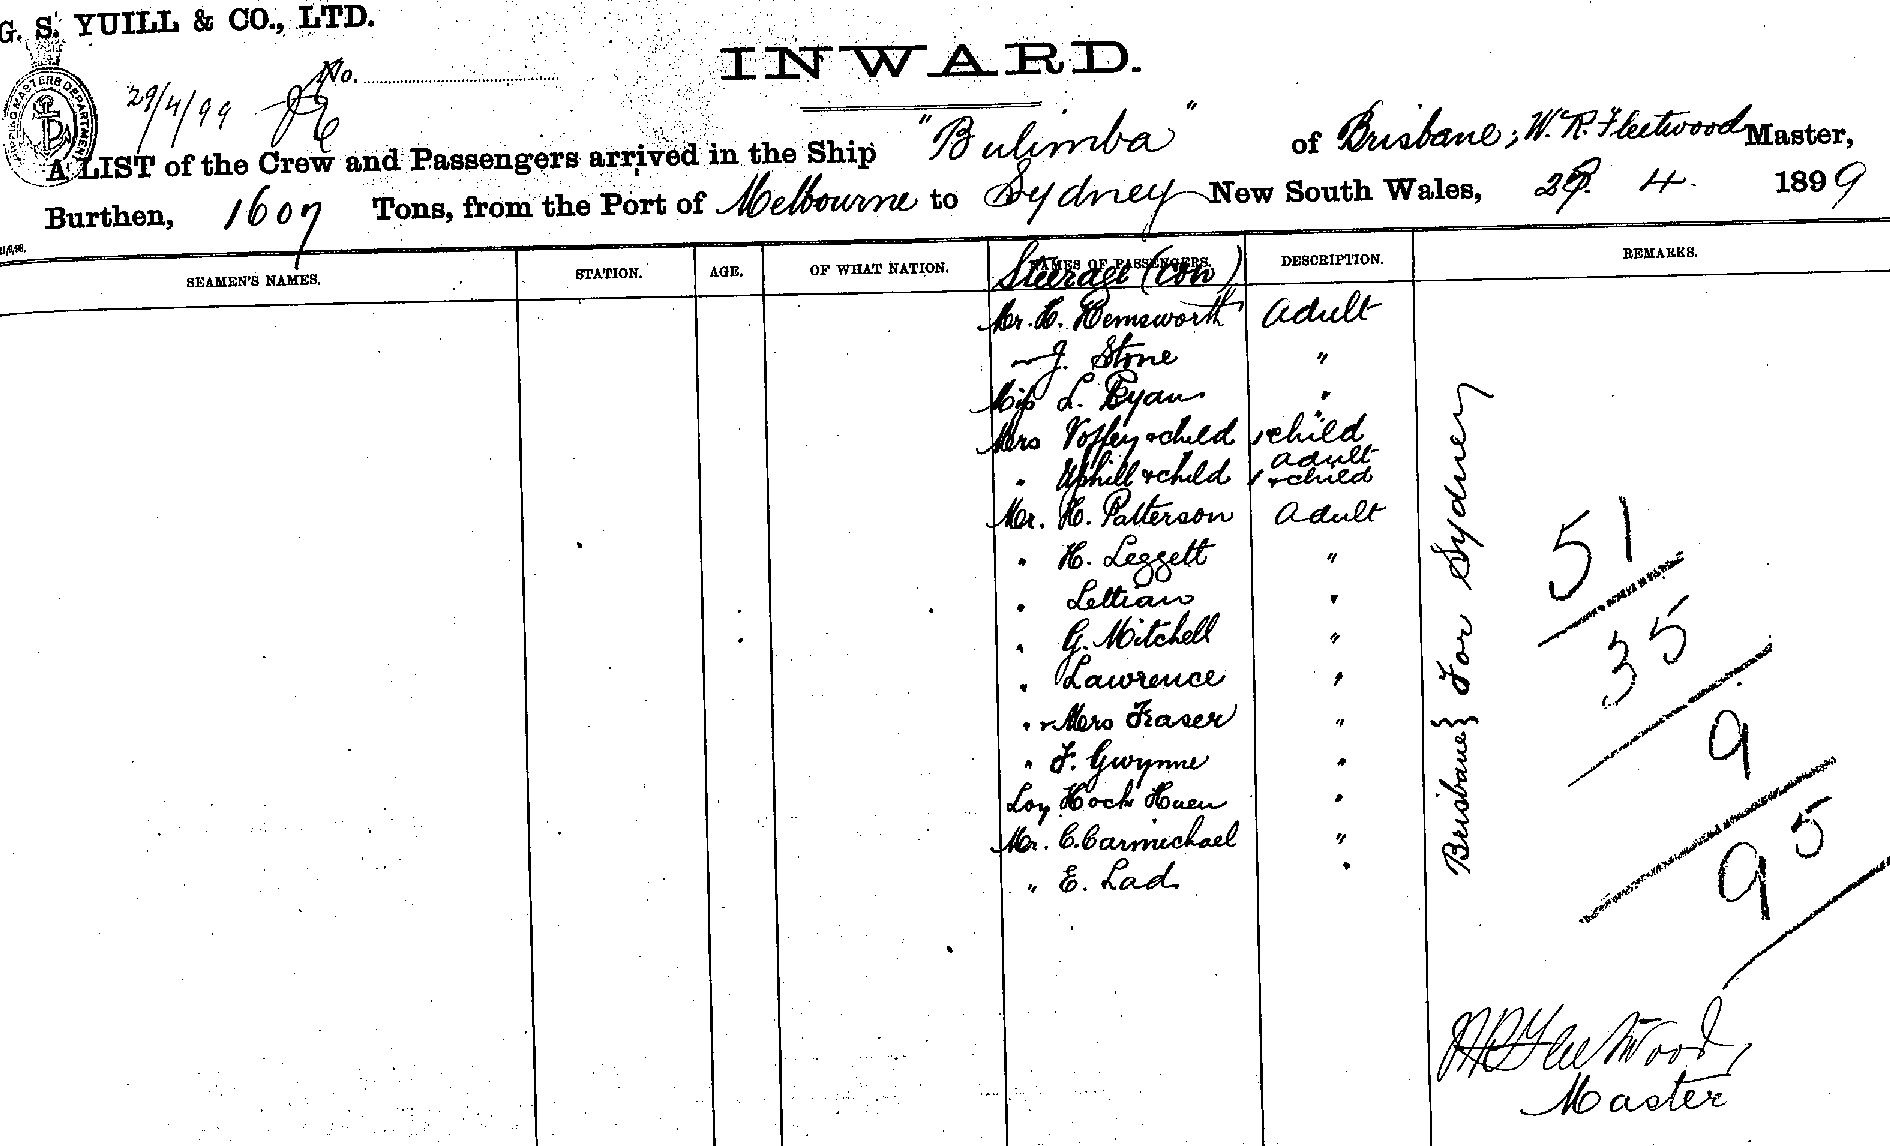 G. S. YUILL & CO., LTD.
INWARD.
No.
SHIPPING MASTERS DEPARTMENT
29/4/99
A LIST of the Crew and Passengers arrived in the Ship "Bulimba" of Brisbane, W. R. Fleetwood Master,
Burthen, 1607 Tons, from the Port of Melbourne to Sydney New South Wales, 29. 4. 1899
SEAMEN'S NAMES. STATION. AGE. OF WHAT NATION. NAMES OF PASSENGERS. DESCRIPTION. REMARKS.
Steerage (con)
Mr. H. Hemsworth Adult
J. Stone "
Miss L. Ryan "
Mrs Voffey & child 1 & child
" Uphill & child adult 1 & child
Mr. H. Patterson Adult
" H. Leggett "
" "
" G. Mitchell "
" Lawrence "
" Mrs Fraser "
" F. Gwynne "
Loy Hock Huen "
Mr. C. Carmichael "
" E. Lad "
Brisbane }} For Sydney
51
35
9
95
W R Fleetwood,
Master